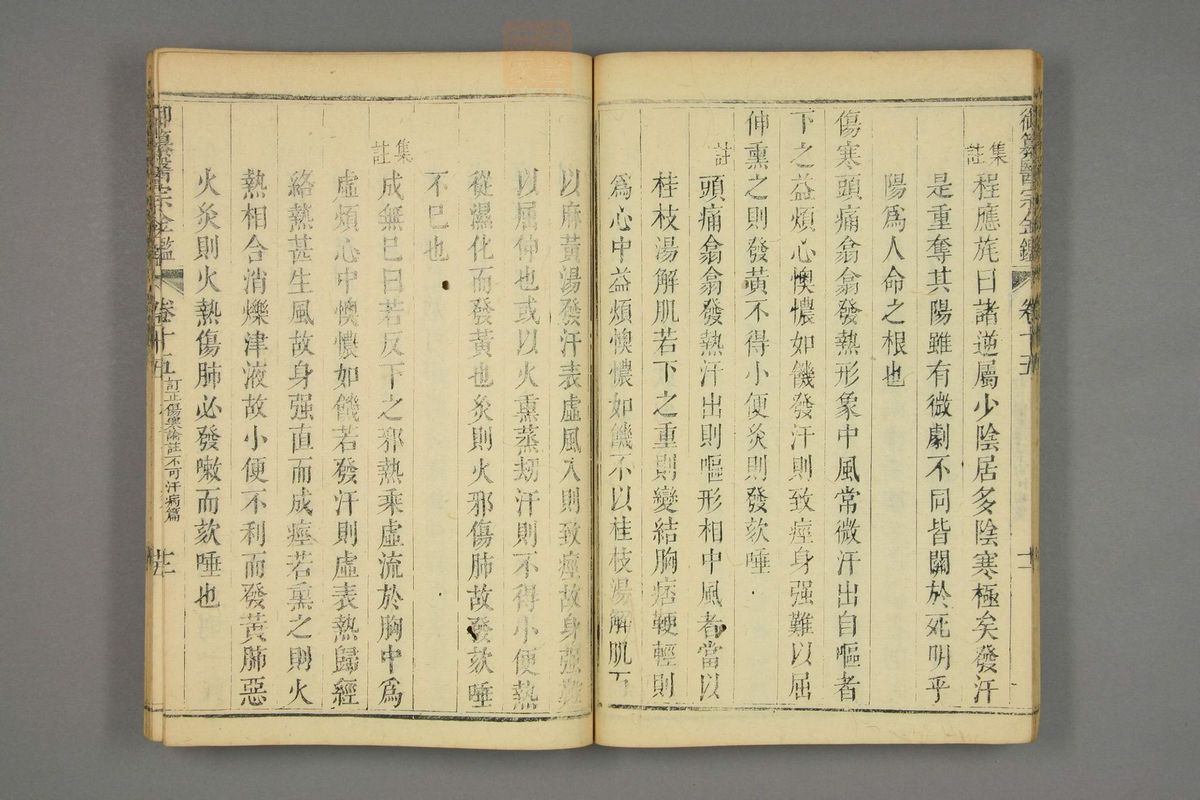 御纂醫宗金鑑 卷十五
集註
程應旄曰諸逆屬少陰居多陰寒極矣發汗
是重奪其陽雖有微劇不同皆關於死明乎
陽爲人命之根也
傷寒頭痛翕翕發熱形象中風常微汗出自嘔者
下之益煩心懊憹如饑發汗則致痙身强難以屈
伸熏之則發黃不得小便灸則發欬唾
註
頭痛翕翕發熱汗出則嘔形相中風者當以
桂枝湯解肌若下之重則變結胸痞鞕輕則
爲心中益煩懊憹如饑不以桂枝湯解肌
以麻黃湯發汗表虛風入則致痙故身强難
以屈伸也或以火熏蒸刼汗則不得小便熱
從濕化而發黃也灸則火邪傷肺故發欬唾
不已也
集註
成無已曰若反下之邪熱乘虛流於胸中爲
虛煩心中懊憹如饑若發汗則虛表熱歸經
絡熱甚生風故身强直而成痙若熏之則火
熱相合消爍津液故小便不利而發黃肺惡
火灸則火熱傷肺必發嗽而欬唾也
御纂醫宗金鑑 卷十五 訂正傷寒論註不可汗病篇